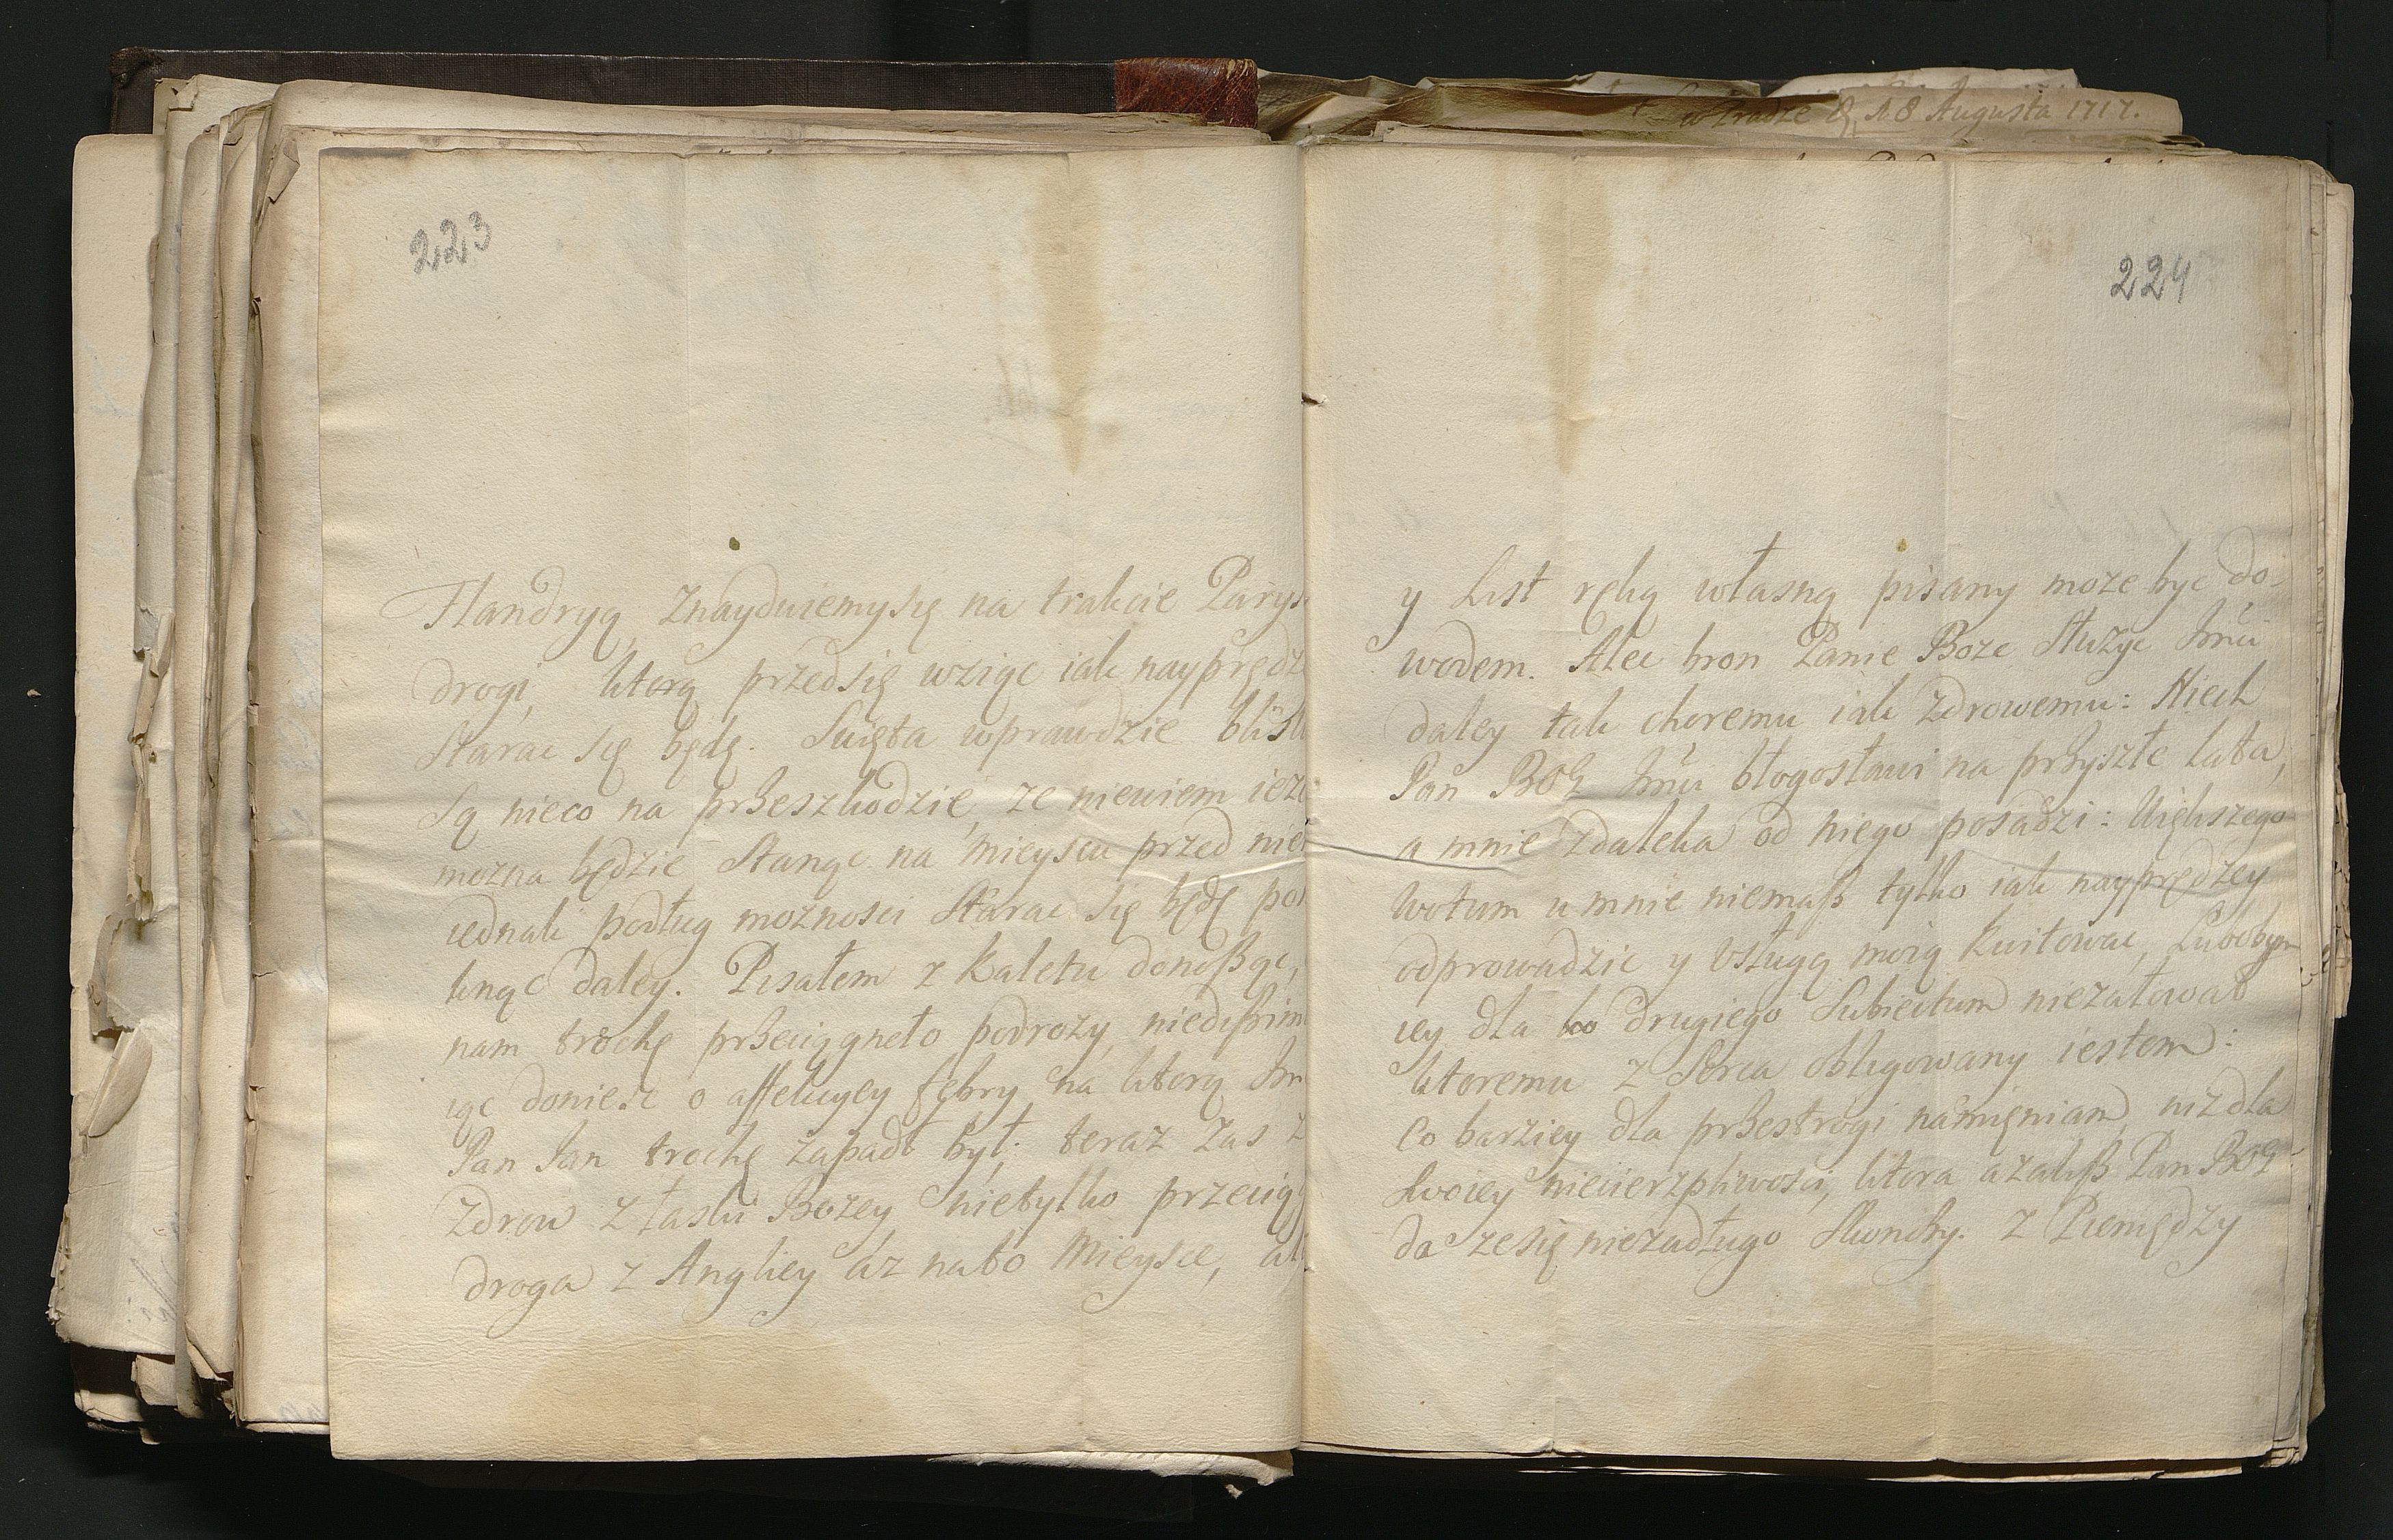 w Pradze d. 18 Augusta 1717.
223
Flandryą, znayduiemy się na trakcie Parys
drogi, ktorą przedsię wziąc iak nayprędz
Starac się będę. Swięta wprawdzie blisk
Są nieco na przeszkodzie, ze niewiem iez
mozna będzie Stanąc na Mieyscu przed nie
iednak podług moznosci Starac się będę po
knąc daley. Pisałem z Kaletu donosząc,
nam trochę przeciągneło podrozy,
iąc doniesc o affekcyey febry na ktorą
Pan Jan trochę zapadł był; teraz zas z
Zdrow z łaski Bozey nietylko przeciąg
droga z Angliey az nato Mieysce, al
224
y List ręką własną pisany moze byc do-
wodem. Alec bron Panie Boze Słuzyc Jmci
daley tak choremu iak Zdrowemu: Niech
Pan BOG Jmci błogosławi na przyszłe lata,
a mnie zdaleka od niego posadzi: Większego
Wotum u mnie niemasz tylko iak nayprędzey
odprowadzic y Usługą moią kwitowac, Lubobym
iey dla drugiego Subiectum niezałował
ktoremu z Serca obligowany iestem:
Co barziey dla przestrogi namięniam, niz dla
Swoiey niecierzpliwosci, ktora azalisz Pan BOG
da ze się niezadługo Skonczy. Z Pieniędzy